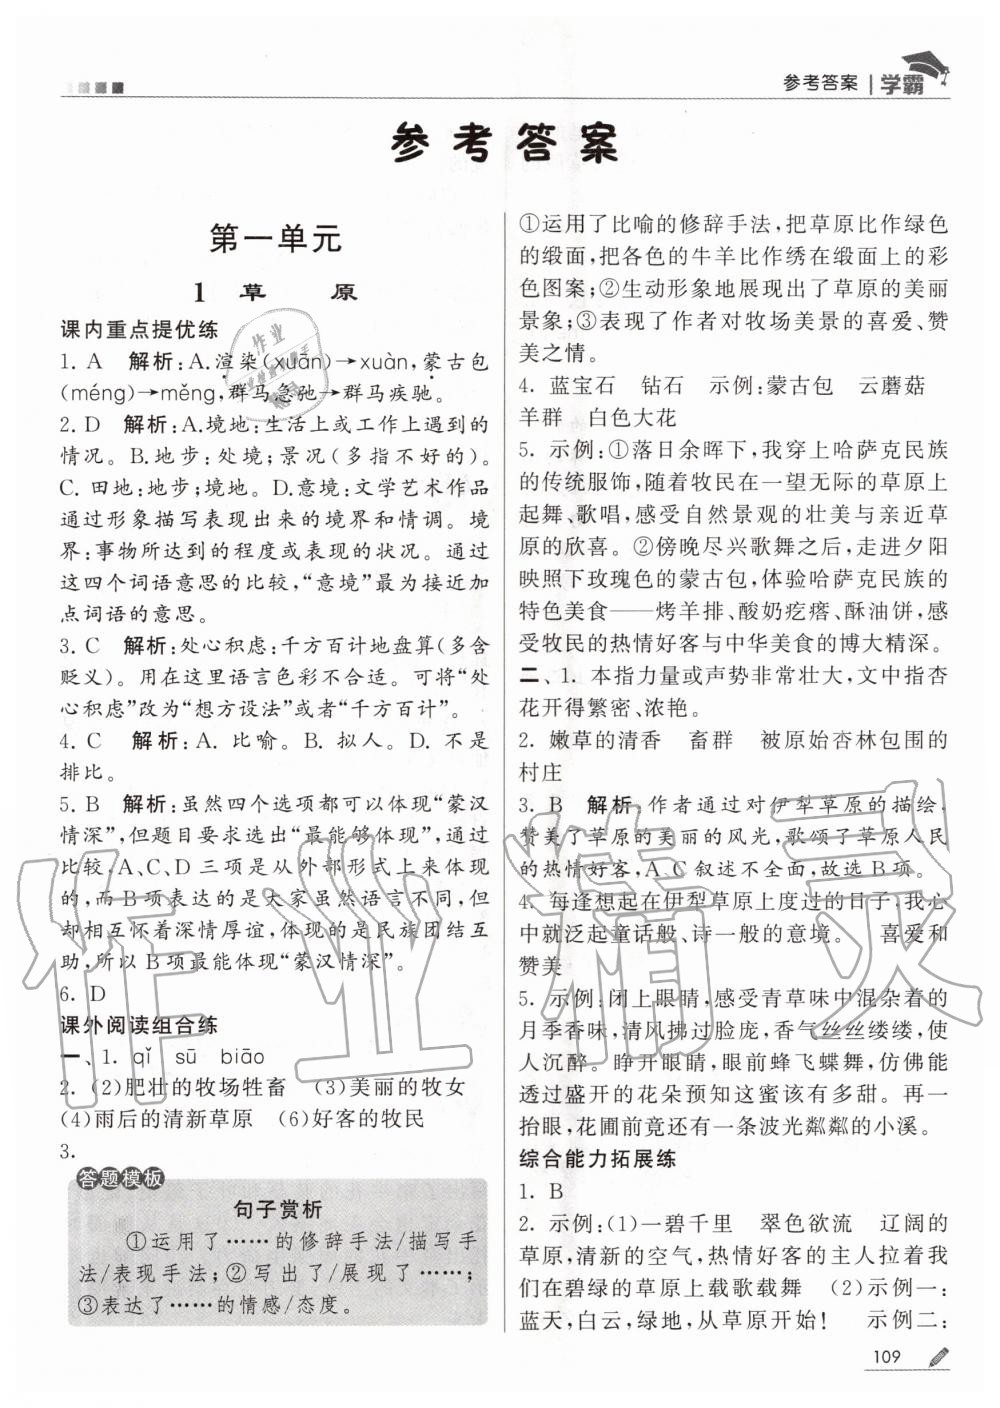 参考答案 学霸
参考答案
第一单元
1 草 原
课内重点提优练
1. A 解析:A.渲染(xuān)→xuàn,蒙古包
(méng)→měng,群马急弛→群马疾驰。
2. D 解析:A.境地:生活上或工作上遇到的
情况。B.地步:处境;景况(多指不好的)。
C. 田地:地步;境地。D.意境:文学艺术作品
通过形象描写表现出来的境界和情调。境
界:事物所达到的程度或表现的状况。通过
这四个词语意思的比较,“意境”最为接近加
点词语的意思。
3. C 解析:处心积虑:千方百计地盘算(多含
贬义)。用在这里语言色彩不合适。可将“处
心积虑”改为“想方设法”或者“千方百计”。
4. C 解析:A. 比喻。B. 拟人。D. 不是
排比。
5. B 解析:虽然四个选项都可以体现“蒙汉
情深”,但题目要求选出“最能够体现”,通过
比较,A、C、D 三项是从外部形式上来体现
的,而B项表达的是大家虽然语言不同,但
却相互怀着深情厚谊,体现的是民族团结互
助,所以 B项最能体现“蒙汉情深”。
6. D
课外阅读组合练
一、1. qǐ sū biāo
2. (2)肥壮的牧场牲畜 (3)美丽的牧女
(4)雨后的清新草原 (6)好客的牧民
3.
答题模板
句子赏析
①运用了……的修辞手法/描写手
法/表现手法;②写出了/展现了……;
③表达了……的情感/态度。
①运用了比喻的修辞手法,把草原比作绿色
的缎面,把各色的牛羊比作绣在缎面上的彩
色图案;②生动形象地展现出了草原的美丽
景象;③表现了作者对牧场美景的喜爱、赞
美之情。
4. 蓝宝石 钻石 示例:蒙古包 云蘑菇
羊群 白色大花
5. 示例:①落日余晖下,我穿上哈萨克民族
的传统服饰,随着牧民在一望无际的草原上
起舞、歌唱,感受自然景观的壮美与亲近草
原的欣喜。②傍晚尽兴歌舞之后,走进夕阳
映照下玫瑰色的蒙古包,体验哈萨克民族的
特色美食——烤羊排、酸奶疙瘩、酥油饼,感
受牧民的热情好客与中华美食的博大精深。
二、1. 本指力量或声势非常壮大,文中指杏
花开得繁密、浓艳。
2. 嫩草的清香 畜群 被原始杏林包围的
村庄
3. B 解析:作者通过对伊犁草原的描绘,
赞美了草原的美丽的风光,歌颂了草原人民
的热情好客,A、C叙述不全面,故选B项。
4. 每逢想起在伊犁草原上度过的日子,我心
中就泛起童话般、诗一般的意境。 喜爱和
赞美
5. 示例:闭上眼睛,感受青草味中混杂着的
月季香味,清风拂过脸庞,香气丝丝缕缕,使
人沉醉。睁开眼睛,眼前蜂飞蝶舞,仿佛能
透过盛开的花朵知道这蜜该有多甜。再一
抬眼,花圃前竟还有一条波光粼粼的小溪。
综合能力拓展练
1. B
2. 示例:(1)一碧千里 翠色欲流 辽阔的
草原,清新的空气,热情好客的主人拉着我
们在碧绿的草原上载歌载舞 (2)示例一:
蓝天,白云,绿地,从草原开始! 示例二:
109
作业精灵